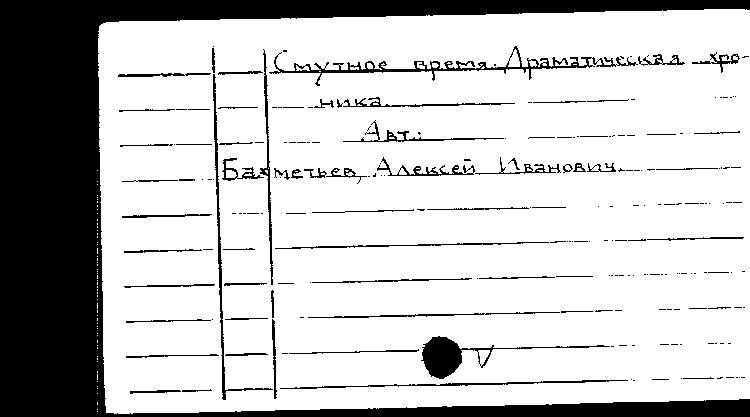 Смутное время. Драматическая хро-
ника.
Авт.:
Бахметьев, Алексей Иванович.
V